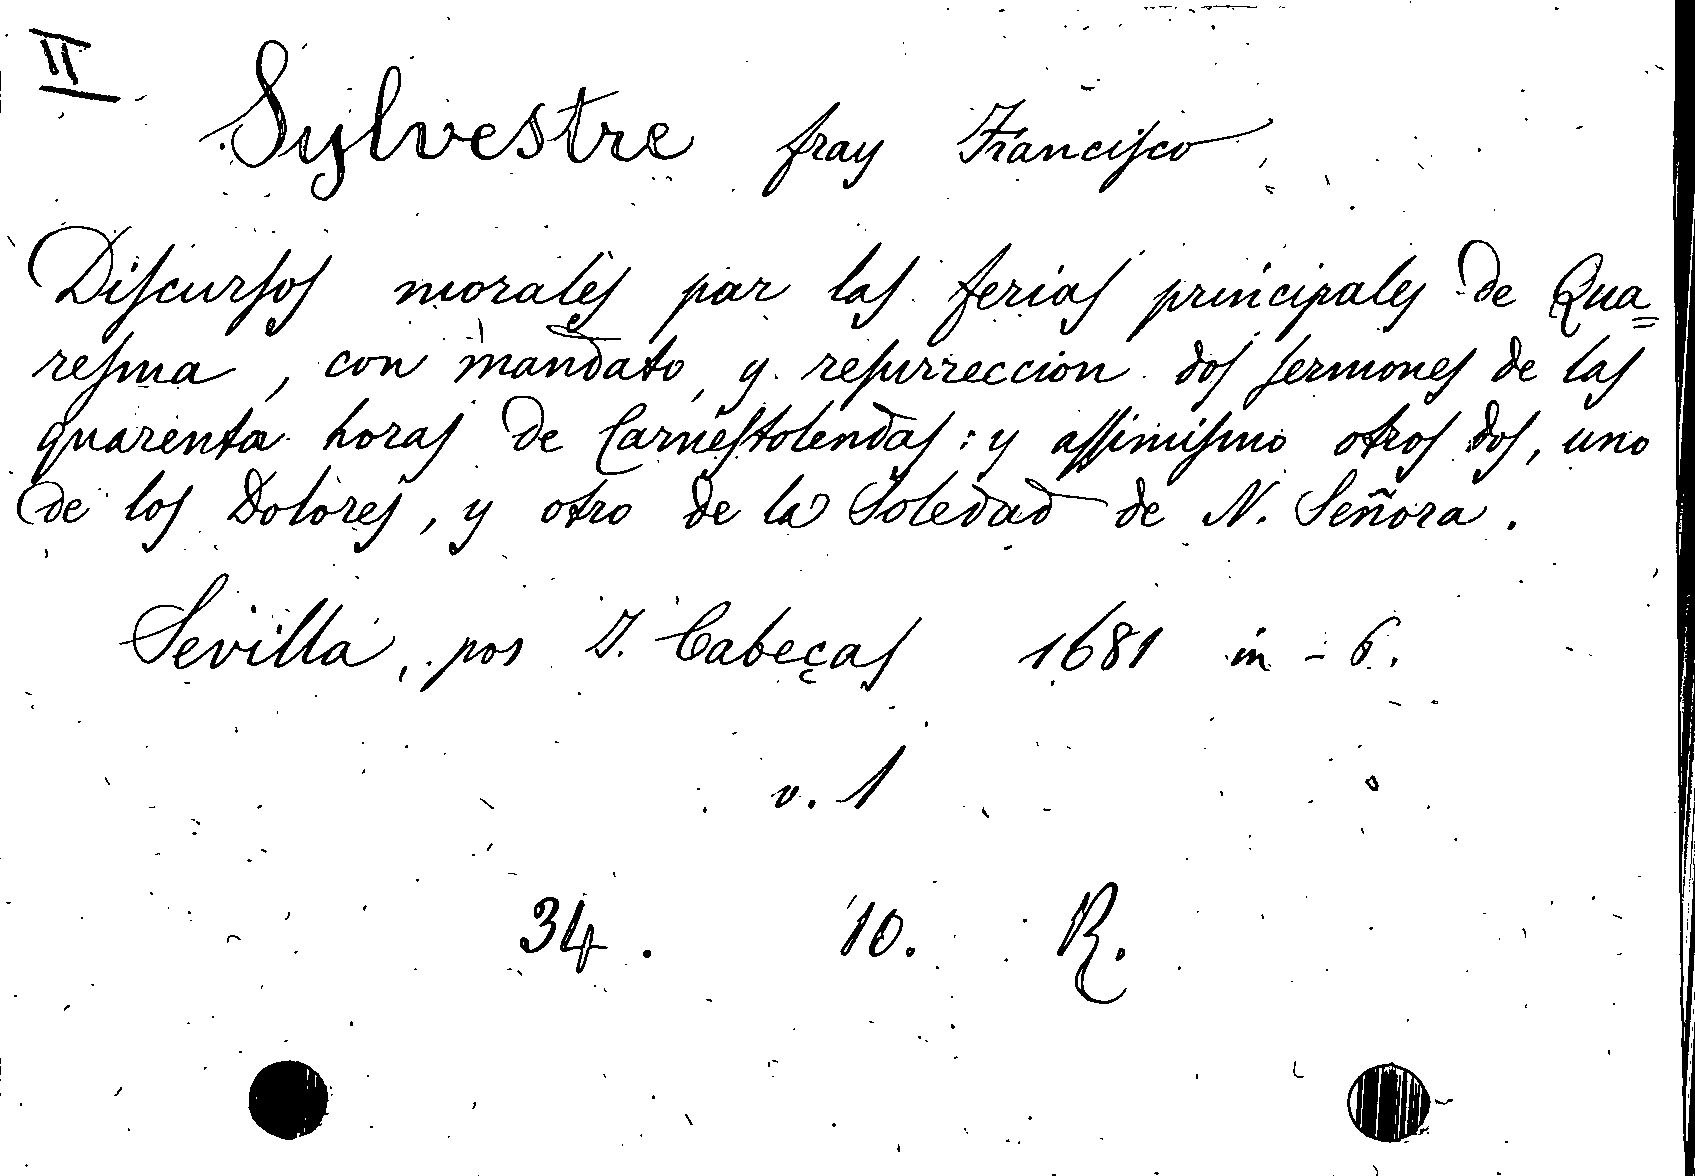 II
Sylvestre fray Francisco
Discursos morales par las ferias principales de Qua=
resma, con mandato, y resurreccion dos sermones de las
quarenta horas de Carnestolendas: y assimismo otros dos, uno
de los Dolores, y otro de la Soledad de N. Señora.
Sevilla, por J. Cabeças 1681 in-6.
v. 1
34. 10. R.